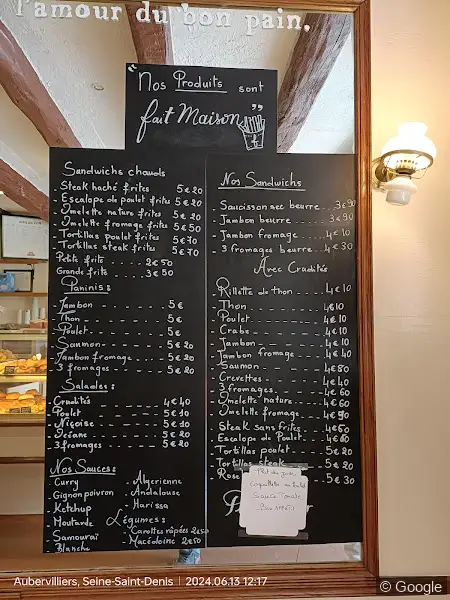 l'amour du bon pain.
"Nos Produits sont
fait Maison"
Sandwichs chauds
- Steak haché frites 5€20
- Escalope de poulet frites 5€20
- Omelette nature frites 5€20
- Omelette fromage frites 5€50
- Tortillas poulet frites 5€70
- Tortillas steak frites 5€70
Petite frite 2€50
Grande frite 3€50
Paninis:
- Jambon 5€
- Thon 5€
- Poulet 5€
- Saumon 5€20
- Jambon fromage 5€20
- 3 fromages 5€20
Salades:
Crudités 4€40
Poulet 5€10
Niçoise 5€10
Océane 5€20
3 fromages 5€20
Nos Sauces:
Curry - Algerienne
Gignon poivron - Andalouse
Ketchup - Harissa
Moutarde Légumes:
Samouraï - Carottes râpées 2€50
Blanche - Macédoine 2€50
Nos Sandwichs
- Saucisson sec beurre 3€90
- Jambon beurre 3€90
- Jambon fromage 4€10
- 3 fromages beurre 4€30
Avec Crudités
- Rillette de thon 4€10
- Thon 4€10
- Poulet 4€10
- Crabe 4€10
- Jambon 4€10
- Jambon fromage 4€40
- Saumon 4€80
- Crevettes 4€40
- 3 fromages 4€60
- Omelette nature 4€60
- Omelette fromage 4€90
- Steak sans frites 4€60
- Escalope de Poulet
- Tortillas poulet 5€20
- Tortillas steak 5€20
5€30
Plat du jour
Coquillettes au Poulet
Sauce Tomate
Aubervilliers, Seine-Saint-Denis | 2024.06.13 12:17
© Google